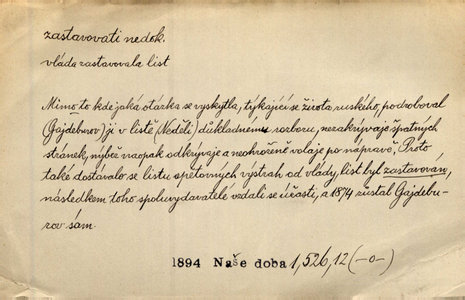 zastavovati nedok.
vláda zastavovala list
Mimo to kde jaká otázka se vyskytla, týkající se života ruského, podroboval
(Gajdeburov) ji v listě (Neděli) důkladnému rozboru, nezakrývaje špatných
stránek, nýbrž naopak odkrývaje a neohroženě volaje po nápravě, Proto
také dostávalo se listu opětovných výstrah od vlády, list byl zastavován,
následkem toho spoluvydavatelé vzdali se účasti, a 1874 zůstal Gajdebu-
rov sám.
1894 Naše doba 1,526,12 (-o-)